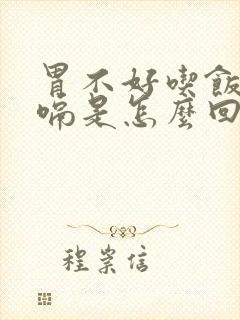 胃不好喫飯
嗝是怎麼回
程崇信